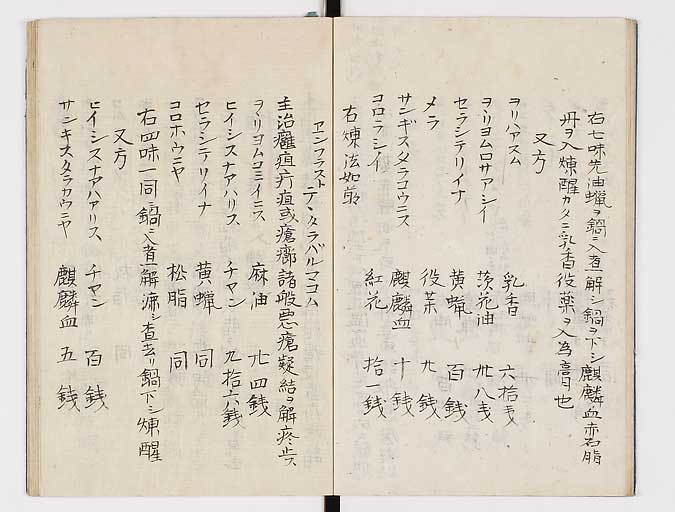 右七味先油蝋ヲ鍋ニ入煮解シ鍋ヲ下シ麒麟血赤石脂
丹ヲ入煉醒カタニ乳香役薬ヲ入為膏也
又方
ヲリハアスム 乳香 六拾戔
ヲヽリヨムロサアシイ 茨花油 卅八戔
セラシテリイナ 黄蝋 百銭
メラ 役菜 九銭
サンギスタラコウニス 麒麟血 十銭
コロラシイ 紅花 拾一銭
右煉法如前
ヱンフラスト テンタラバルマコム
主治癰疽疔疽或瘡癤諸般悪瘡凝結ヲ解疼止ス
ヲヽリヨムコミイニス 麻油 廿四銭
ヒイシスナアハリス チヤン 九拾六銭
セラシテリイナ 黄蝋 同
コロホウニヤ 松脂 同
右四味一同鍋ニ入煮解漉シ査去リ鍋下シ煉醒
又方
ヒイシスナアハアリス チヤン 百銭
サンキスタラカウニヤ 麒麟血 五銭